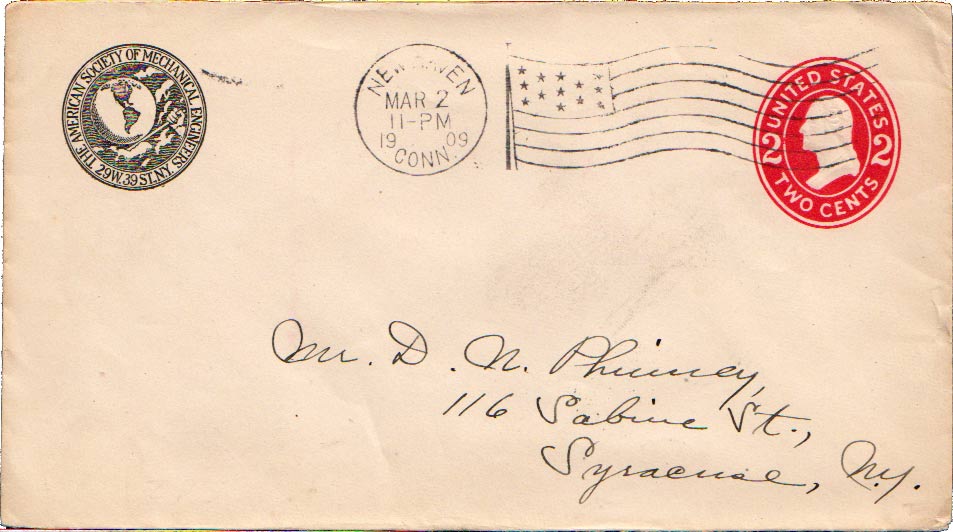 THE AMERICAN SOCIETY OF MECHANICAL ENGINEERS
29 W. 39 ST. N.Y.
NEW HAVEN
MAR 2
11-PM
19 09
CONN.
UNITED STATES
2 2
TWO CENTS
Mr. D. N. Phinney,
116 Sabine St.,
Syracuse, N.Y.